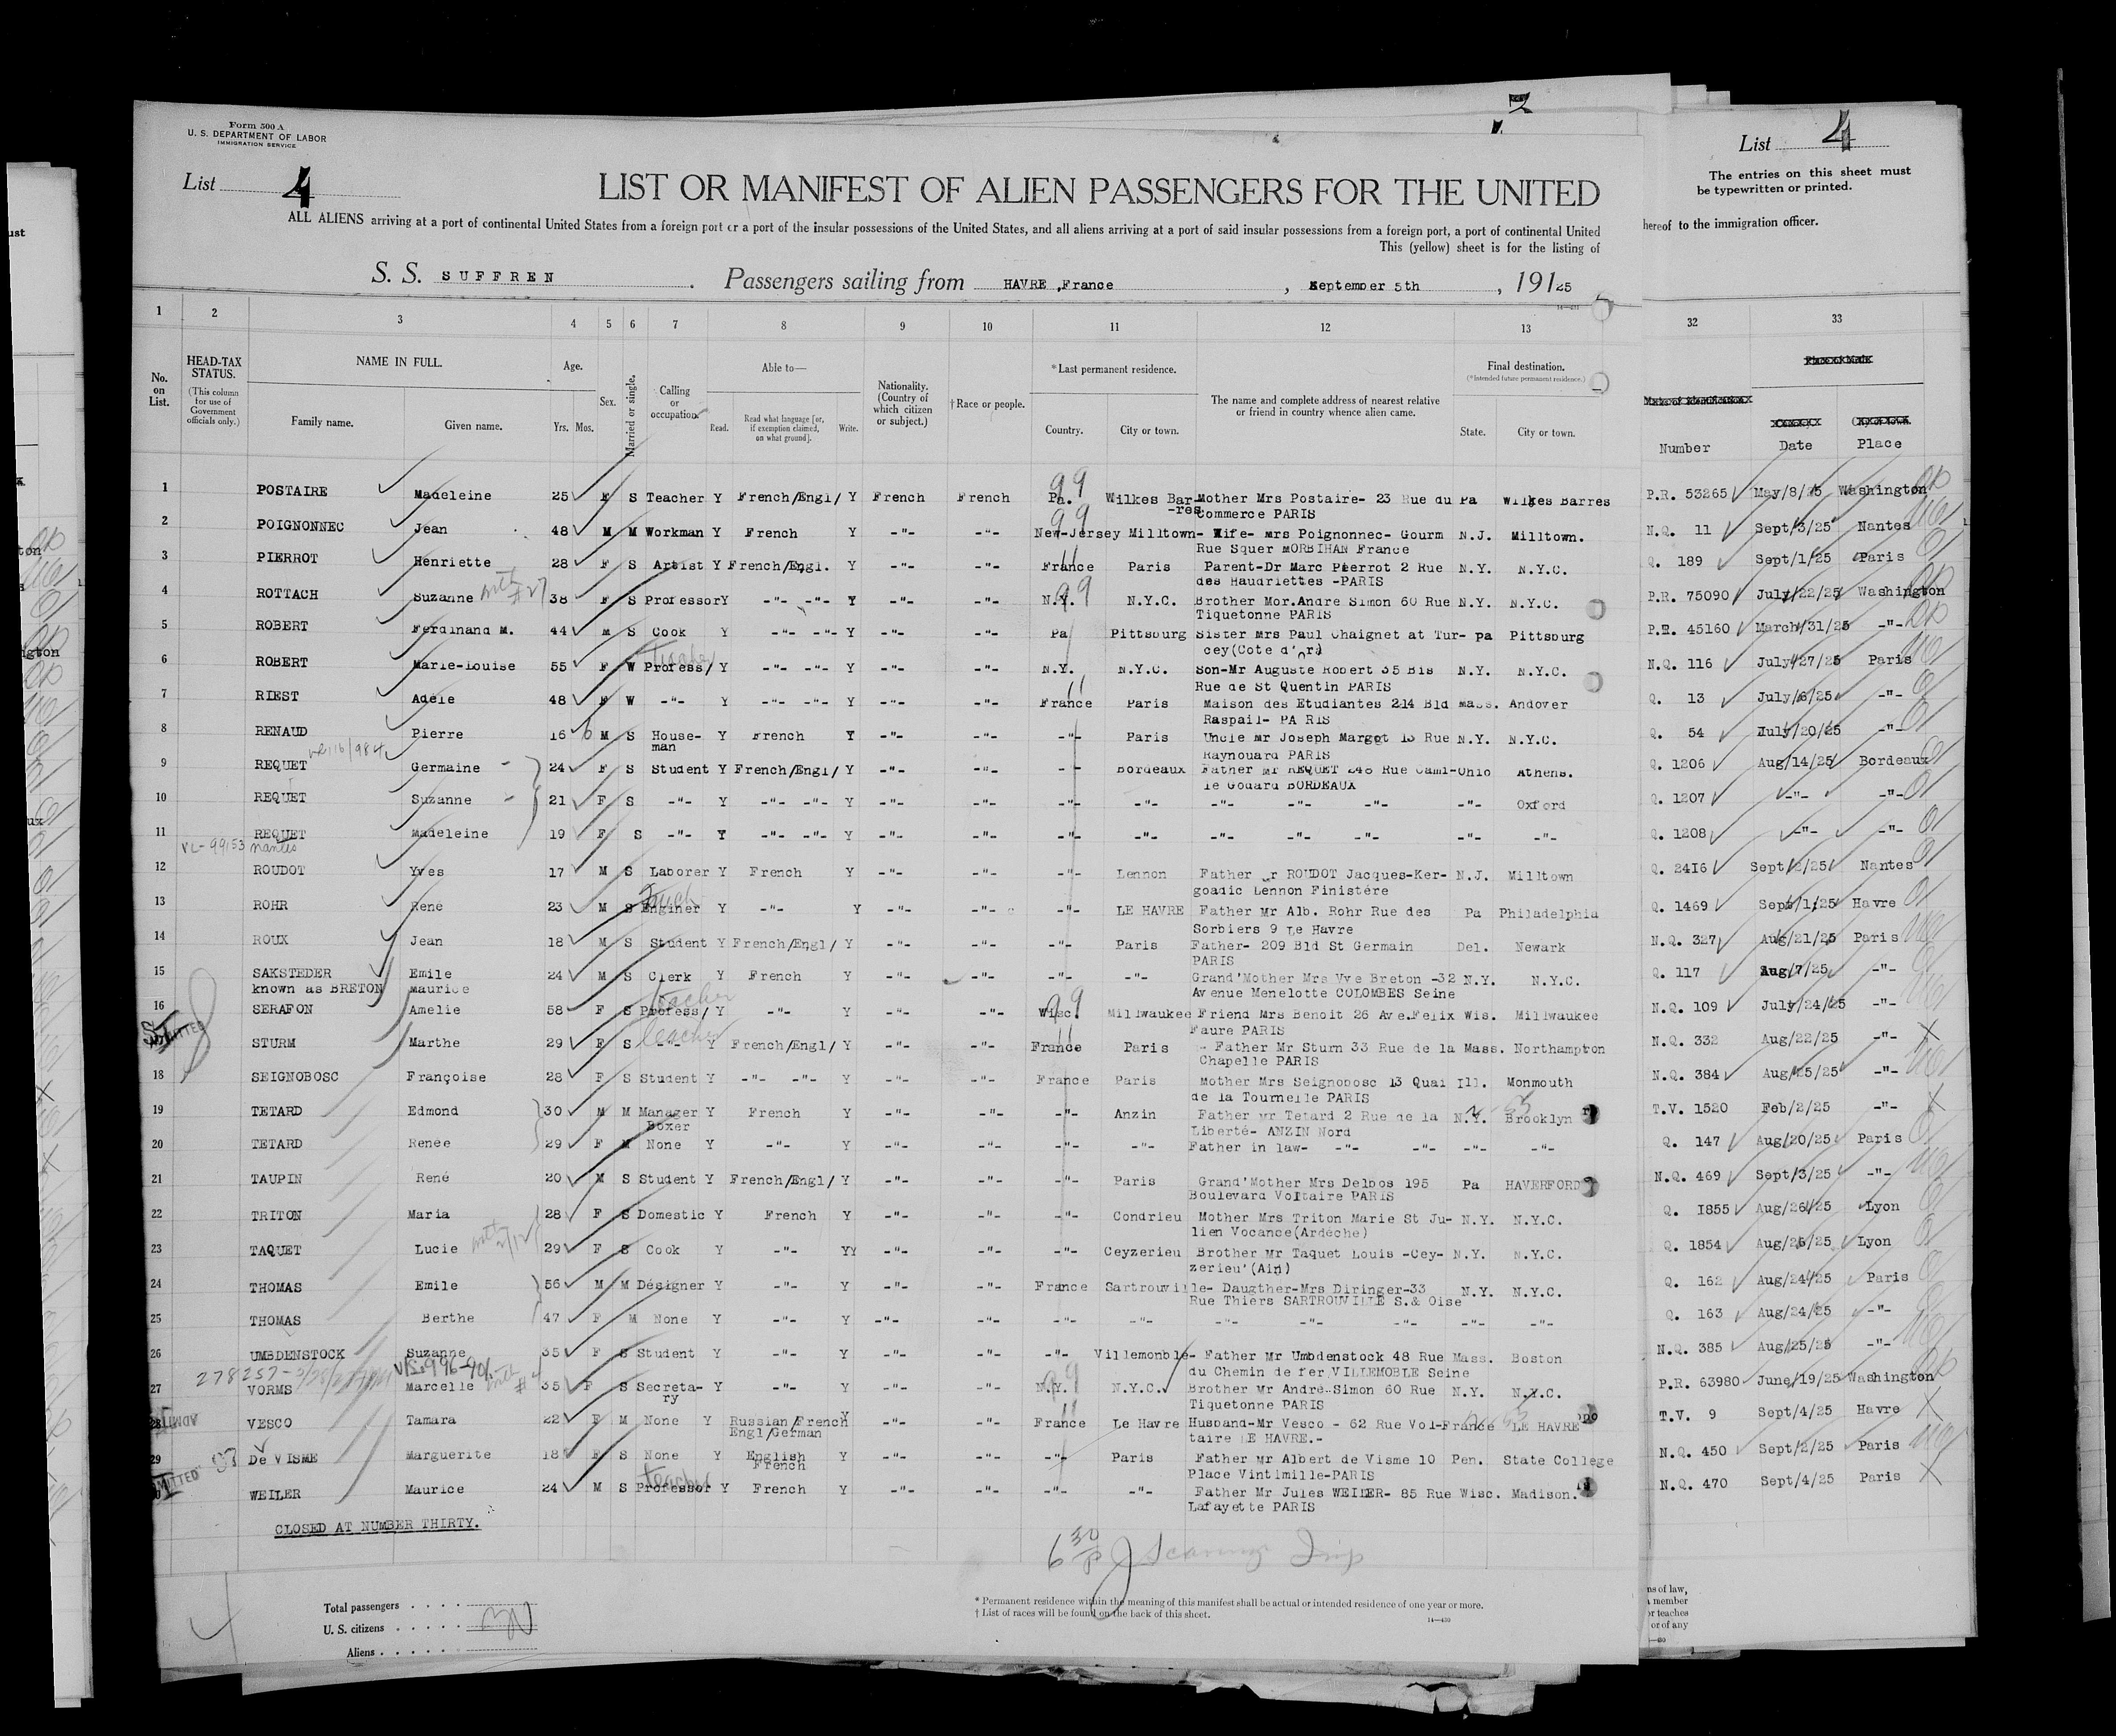 Form 500 A
U. S. DEPARTMENT OF LABOR
IMMIGRATION SERVICE
List 4
LIST OR MANIFEST OF ALIEN PASSENGERS FOR THE UNITED
ALL ALIENS arriving at a port of continental United States from a foreign port or a port of the insular possessions of the United States, and all aliens arriving at a port of said insular possessions from a foreign port, a port of continental United
This (yellow) sheet is for the listing of
S. S. SUFFREN Passengers sailing from HAVRE ,France , September 5th , 19125
List 4
The entries on this sheet must
be typewritten or printed.
hereof to the immigration officer.
1 2 3 4 5 6 7 8 9 10 11 12 13 32 33
No. on List.
HEAD-TAX STATUS.
(This column for use of Government officials only.)
NAME IN FULL.
Family name. Given name.
Age.
Yrs. Mos.
Sex.
Married or single.
Calling or occupation.
Able to—
Read. Read what language [or, if exemption claimed, on what ground]. Write.
Nationality. (Country of which citizen or subject.)
†Race or people.
*Last permanent residence.
Country. City or town.
The name and complete address of nearest relative or friend in country whence alien came.
Final destination.
(*Intended future permanent residence.)
State. City or town.
Number Date Place
1 POSTAIRE Madeleine 25 F S Teacher Y French/Engl/ Y French French Pa. Wilkes Bar- Mother Mrs Postaire- 23 Rue du Pa Wilkes Barres P.R. 53265 May/8/25 Washington
-res Commerce PARIS
2 POIGNONNEC Jean 48 M M Workman Y French Y -"- -"- New-Jersey Milltown- Wife- mrs Poignonnec- Gourm N.J. Milltown. N.Q. 11 Sept/3/25 Nantes
Rue Squer MORBIHAN France
3 PIERROT Henriette 28 F S Artist Y French/Engl. Y -"- -"- France Paris Parent-Dr Marc Pierrot 2 Rue N.Y. N.Y.C. Q. 189 Sept/1/25 Paris
des Haudriettes -PARIS
4 ROTTACH Suzanne 38 F S Professor Y -"- -"- Y -"- -"- N.Y. N.Y.C. Brother Mor.Andre Simon 60 Rue N.Y. N.Y.C. P.R. 75090 July/22/25 Washington
Tiquetonne PARIS
5 ROBERT Ferdinand M. 44 M S Cook Y -"- -"- Y -"- -"- Pa Pittsburg Sister Mrs Paul Chaignet at Tur- pa Pittsburg P.R. 45160 March/31/25 -"-
cey(Cote d'Or)
6 ROBERT Marie-Louise 55 F W Profess/ Y -"- -"- Y -"- -"- N.Y. N.Y.C. Son-Mr Auguste Robert 35 Bis N.Y. N.Y.C. N.Q. 116 July/27/25 Paris
Rue de St Quentin PARIS
7 RIEST Adele 48 F W -"- Y -"- -"- Y -"- -"- France Paris Maison des Etudiantes 214 Bld mass. Andover Q. 13 July/6/25 -"-
Raspail- PA RIS
8 RENAUD Pierre 16 6 M S House- Y French Y -"- -"- -"- Paris Uncle mr Joseph Margot 13 Rue N.Y. N.Y.C. Q. 54 July/20/25 -"-
man Raynouard PARIS
9 REQUET Germaine 24 F S Student Y French/Engl/ Y -"- -"- -"- Bordeaux Father Mr REQUET 248 Rue Cami-Ohio Athens. Q. 1206 Aug/14/25 Bordeaux
le Godard BORDEAUX
10 REQUET Suzanne 21 F S -"- Y -"- -"- Y -"- -"- -"- -"- -"- -"- -"- -"- Oxford Q. 1207 -"- -"-
11 REQUET Madeleine 19 F S -"- Y -"- -"- Y -"- -"- -"- -"- -"- -"- -"- -"- -"- Q. 1208 -"- -"-
nantes
12 ROUDOT Yves 17 M S Laborer Y French Y -"- -"- -"- Lennon Father r ROUDOT Jacques-Ker- N.J. Milltown Q. 2416 Sept/2/25 Nantes
goadic Lennon Finistére
13 ROHR René 23 M S Enginer Y -"- Y -"- -"- -"- LE HAVRE Father Mr Alb. Rohr Rue des Pa Philadelphia Q. 1469 Sept/1/25 Havre
Sorbiers 9 Le Havre
14 ROUX Jean 18 M S Student Y French/Engl/ Y -"- -"- -"- Paris Father- 209 Bld St Germain Del. Newark N.Q. 327 Aug/21/25 Paris
PARIS
15 SAKSTEDER Emile 24 M S Clerk Y French Y -"- -"- -"- -"- Grand'Mother Mrs Vve Breton -32 N.Y. N.Y.C. Q. 117 Aug/7/25 -"-
known as BRETON maurice Avenue Menelotte COLOMBES Seine
16 SERAFON Amelie 58 F S Profess/ Y -"- Y -"- -"- Wisc. Millwaukee Friend Mrs Benoit 26 Ave.Felix Wis. Millwaukee N.Q. 109 July/24/25 -"-
teacher Faure PARIS
STURM Marthe 29 F S -"- Y French/Engl/ Y -"- -"- France Paris - Father Mr Sturn 33 Rue de la Mass. Northampton N.Q. 332 Aug/22/25 -"- X
teacher Chapelle PARIS
18 SEIGNOBOSC Françoise 28 F S Student Y -"- -"- Y -"- -"- France Paris Mother Mrs Seignobosc 13 Quai Ill. Monmouth N.Q. 384 Aug/25/25 -"-
de la Tournelle PARIS
19 TETARD Edmond 30 M M Manager Y French Y -"- -"- -"- Anzin Father mr Tetard 2 Rue de la N.Y. Brooklyn T.V. 1520 Feb/2/25 -"- X
Boxer Liberté- ANZIN Nord
20 TETARD Renée 29 F M None Y -"- Y -"- -"- -"- -"- Father in law- -"- -"- -"- -"- Q. 147 Aug/20/25 Paris
21 TAUPIN René 20 M S Student Y French/Engl/ Y -"- -"- -"- Paris Grand'Mother Mrs Delbos 195 Pa HAVERFORD N.Q. 469 Sept/3/25 -"-
Boulevard Voltaire PARIS
22 TRITON Maria 28 F S Domestic Y French Y -"- -"- -"- Condrieu Mother Mrs Triton Marie St Ju- N.Y. N.Y.C. Q. 1855 Aug/26/25 Lyon
lien Vocance(Ardéche)
23 TAQUET Lucie 29 F S Cook Y -"- YY -"- -"- -"- Ceyzerieu Brother Mr Taquet Louis -Cey- N.Y. N.Y.C. Q. 1854 Aug/26/25 Lyon
zerieu'(Ain)
24 THOMAS Emile 56 M M Désigner Y -"- Y -"- -"- France Sartrouville- Daugther-Mrs Diringer-33 N.Y. N.Y.C. Q. 162 Aug/24/25 Paris
Rue Thiers SARTROUVILLE S.& Oise
25 THOMAS Berthe 47 F M None Y -"- Y -"- -"- -"- -"- -"- -"- -"- -"- -"- Q. 163 Aug/24/25 -"-
26 UMBDENSTOCK Suzanne 35 F S Student Y -"- Y -"- -"- -"- Villemonble- Father Mr Umbdenstock 48 Rue Mass. Boston N.Q. 385 Aug/25/25 -"-
du Chemin de fer VILLEMOBLE Seine
27 VORMS Marcelle 35 F S Secreta- Y -"- Y -"- -"- N.Y. N.Y.C. Brother Mr André-Simon 60 Rue N.Y. N.Y.C. P.R. 63980 June/19/25 Washington
ry Tiquetonne PARIS
28 VESCO Tamara 22 F M None Y Russian/French Y -"- -"- France Le Havre Husband-Mr Vesco - 62 Rue Vol-France LE HAVRE T.V. 9 Sept/4/25 Havre X
Engl/German taire LE HAVRE.-
29 De VISME Marguerite 18 F S None Y English Y -"- -"- -"- Paris Father Mr Albert de Visme 10 Pen. State College N.Q. 450 Sept/2/25 Paris
French Place Vintimille-PARIS
WEILER Maurice 24 M S Professor Y French Y -"- -"- -"- -"- Father Mr Jules WEILER- 85 Rue Wisc. Madison. N.Q. 470 Sept/4/25 Paris X
teacher Lafayette PARIS
CLOSED AT NUMBER THIRTY.
Total passengers
U. S. citizens
Aliens
30
* Permanent residence within the meaning of this manifest shall be actual or intended residence of one year or more.
† List of races will be found on the back of this sheet.
14—430